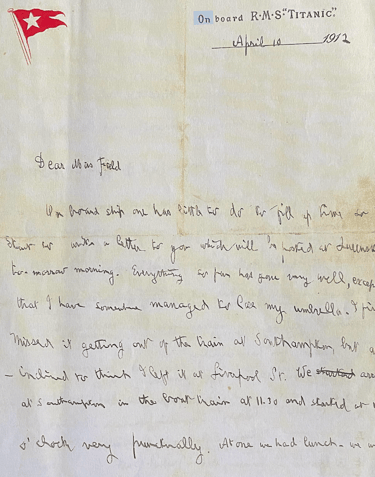 On board R·M·S·"TITANIC".
April 10 1912
Dear Miss Field
On board ship one has little to do to fill up time so
to write a letter to you which will be posted at Queens
to-morrow morning. Everything so far has gone very well, excep
that I have somehow managed to lose my umbrella. I
missed it getting out of the train at Southampton, but a
- inclined to think I left it at Liverpool St. We started
at Southampton in the boat train at 11.30 and started at
o'clock very punctually. At one we had lunch - we